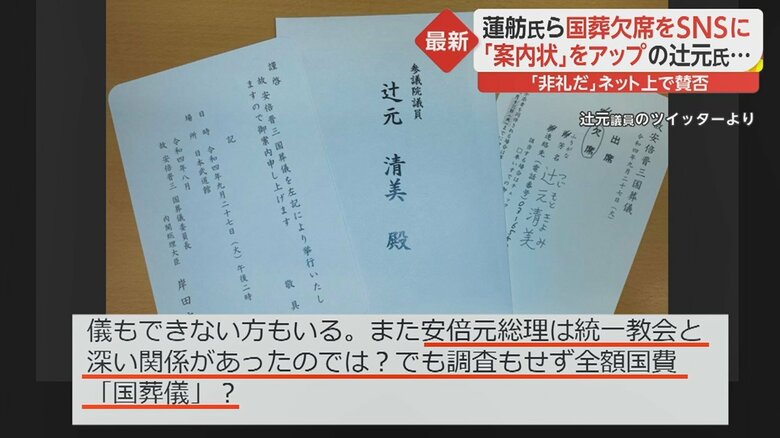 最新
蓮舫氏ら国葬欠席をSNSに
「案内状」をアップの辻元氏…
「非礼だ」ネット上で賛否
辻元議員のツイッターより
謹啓
故安倍晋三国葬儀を左記により挙行いたし
ますので御案内申し上げます
敬具
記
日時 令和四年九月二十七日(火)午後二時
場所 日本武道館
令和四年八月
故安倍晋三国葬儀委員長
内閣総理大臣 岸田
参議院議員
辻元 清美 殿
故安倍晋三国葬儀
令和四年九月二十七日(火)
出席
欠席
ふりがな つじもときよみ
辻元清美
儀もできない方もいる。また安倍元総理は統一教会と
深い関係があったのでは?でも調査もせず全額国費
「国葬儀」?